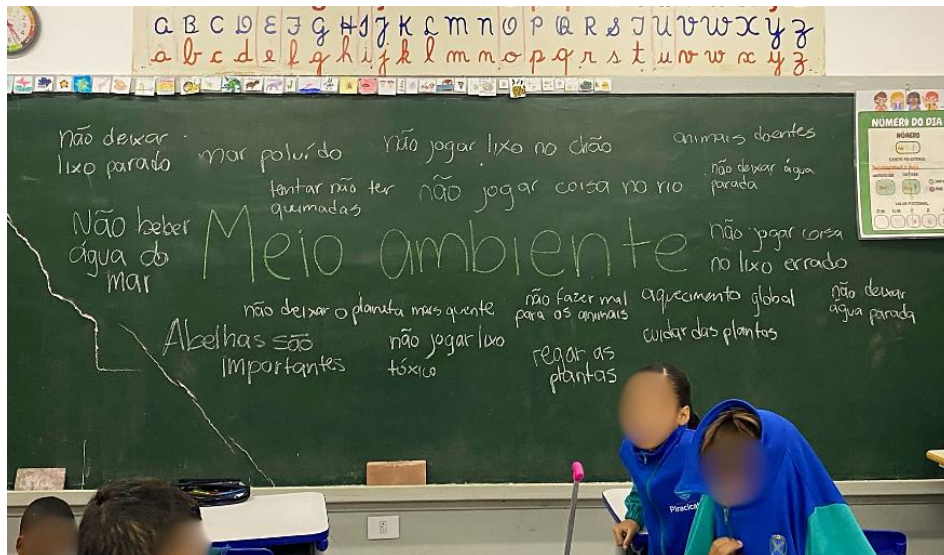 a B C D E F G H I J K L M N O P Q R S T U V W X Y Z
a b c d e f g h i j k l m n o p q r s t u v w x y z
não deixar
lixo parado
mar poluído
não jogar lixo no chão
animais doentes
tentar não ter
queimadas
não jogar coisa no rio
não deixar água
parada
Não beber
água do
mar
Meio ambiente
não jogar coisa
no lixo errado
não deixar o planeta mais quente
não fazer mal
para os animais
aquecimento global
não deixar
água parada
Abelhas são
importantes
não jogar lixo
tóxico
regar as
plantas
cuidar das plantas
NÚMERO DO DIA
NÚMERO